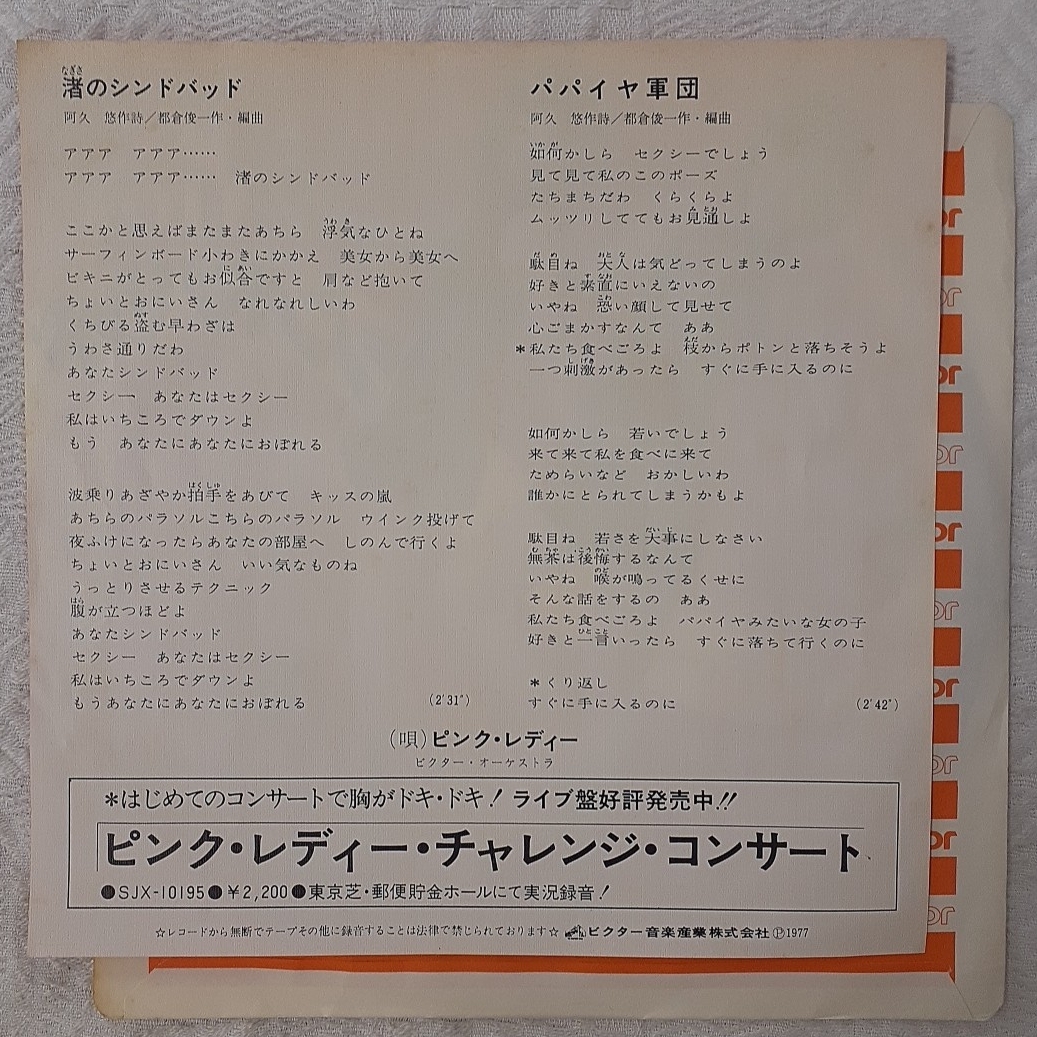 渚のシンドバッド
阿久 悠作詩／都倉俊一作・編曲
アアア アアア……
アアア アアア…… 渚のシンドバッド
ここかと思えばまたまたあちら 浮気なひとね
サーフィンボード小わきにかかえ 美女から美女へ
ビキニがとってもお似合ですと 肩など抱いて
ちょいとおにいさん なれなれしいわ
くちびる盗む早わざは
うわさ通りだわ
あなたシンドバッド
セクシー あなたはセクシー
私はいちころでダウンよ
もう あなたにあなたにおぼれる
波乗りあざやか拍手をあびて キッスの嵐
あちらのパラソルこちらのパラソル ウインク投げて
夜ふけになったらあなたの部屋へ しのんで行くよ
ちょいとおにいさん いい気なものね
うっとりさせるテクニック
腹が立つほどよ
あなたシンドバッド
セクシー あなたはセクシー
私はいちころでダウンよ
もうあなたにあなたにおぼれる (2'31")
パパイヤ軍団
阿久 悠作詩／都倉俊一作・編曲
如何かしら セクシーでしょう
見て見て私のこのポーズ
たちまちだわ くらくらよ
ムッツリしててもお見通しよ
駄目ね 大人は気どってしまうのよ
好きと素直にいえないの
いやね 恐い顔して見せて
心ごまかすなんて ああ
*私たち食べごろよ 枝からポトンと落ちそうよ
一つ刺激があったら すぐに手に入るのに
如何かしら 若いでしょう
来て来て私を食べに来て
ためらいなど おかしいわ
誰かにとられてしまうかもよ
駄目ね 若さを大事にしなさい
無茶は後悔するなんて
いやね 喉が鳴ってるくせに
そんな話をするの ああ
私たち食べごろよ パパイヤみたいな女の子
好きと一言いったら すぐに落ちて行くのに
*くり返し
すぐに手に入るのに (2'42")
(唄)ピンク・レディー
ビクター・オーケストラ
*はじめてのコンサートで胸がドキ・ドキ！ライブ盤好評発売中!!
ピンク・レディー・チャレンジ・コンサート
●SJX-10195●¥2,200●東京芝・郵便貯金ホールにて実況録音！
☆レコードから無断でテープその他に録音することは法律で禁じられております☆ ビクター音楽産業株式会社 Ⓟ1977